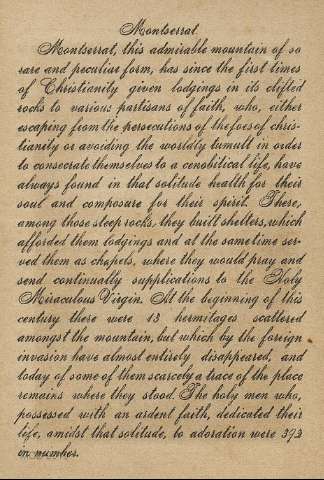 Montserrat
Montserrat, this admirable mountain of so
rare and peculiar form, has since the first times
of Christianity given lodgings in its clifted
rocks to various partisans of faith, who, either
escaping from the persecutions of the foes of chris-
tianity or avoiding the worldly tumult in order
to consecrate themselves to a cenobitical life, have
always found in that solitude health for their
soul and composure for their spirit. There,
among those steep rocks, they built shelters, which
afforded them lodgings and at the same time ser-
ved them as chapels, where they would pray and
send continually supplications to the Holy
Miraculous Virgin. At the beginning of this
century there were 13 hermitages scattered
amongst the mountain, but which by the foreign
invasion have almost entirely disappeared, and
today of some of them scarcely a trace of the place
remains where they stood. The holy men who,
possessed with an ardent faith, dedicated their
life, amidst that solitude, to adoration were 393
in number.